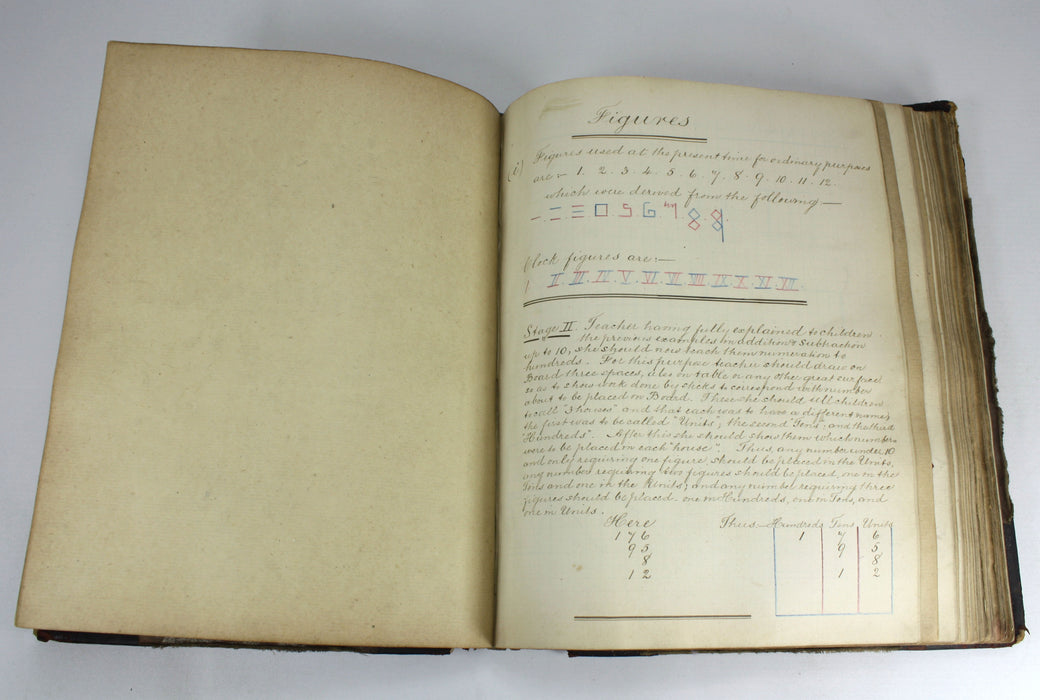 Figures
(i) Figures used at the present time for ordinary purposes
are:- 1. 2. 3. 4. 5. 6. 7. 8. 9. 10. 11. 12.
which were derived from the following:—
Clock figures are:—
I. II. III. IV. V. VI. VII. VIII. IX. X. XI. XII.
Stage II. Teacher having fully explained to children
the previous examples in addition & Subtraction
up to 10, she should now teach them numeration to
hundreds. For this purpose teacher should draw on
Board three spaces, also on table or any other great surface
so as to show work done by sticks to correspond with number
about to be placed on Board. These she should tell children
to call "3 houses" and that each was to have a different name,
the first was to be called "Units"; the second "Tens"; and the third
"Hundreds". After this she should show them which numbers
were to be placed in each "house". Thus, any number under 10
and only requiring one figure, should be placed in the Units,
any number requiring two figures should be placed, one in the
Tens and one in the Units; and any number requiring three
figures should be placed one in Hundreds, one in Tens, and
one in Units.
Here Thus:— Hundreds Tens Units
1 7 6 1 7 6
9 5 9 5
8 8
1 2 1 2